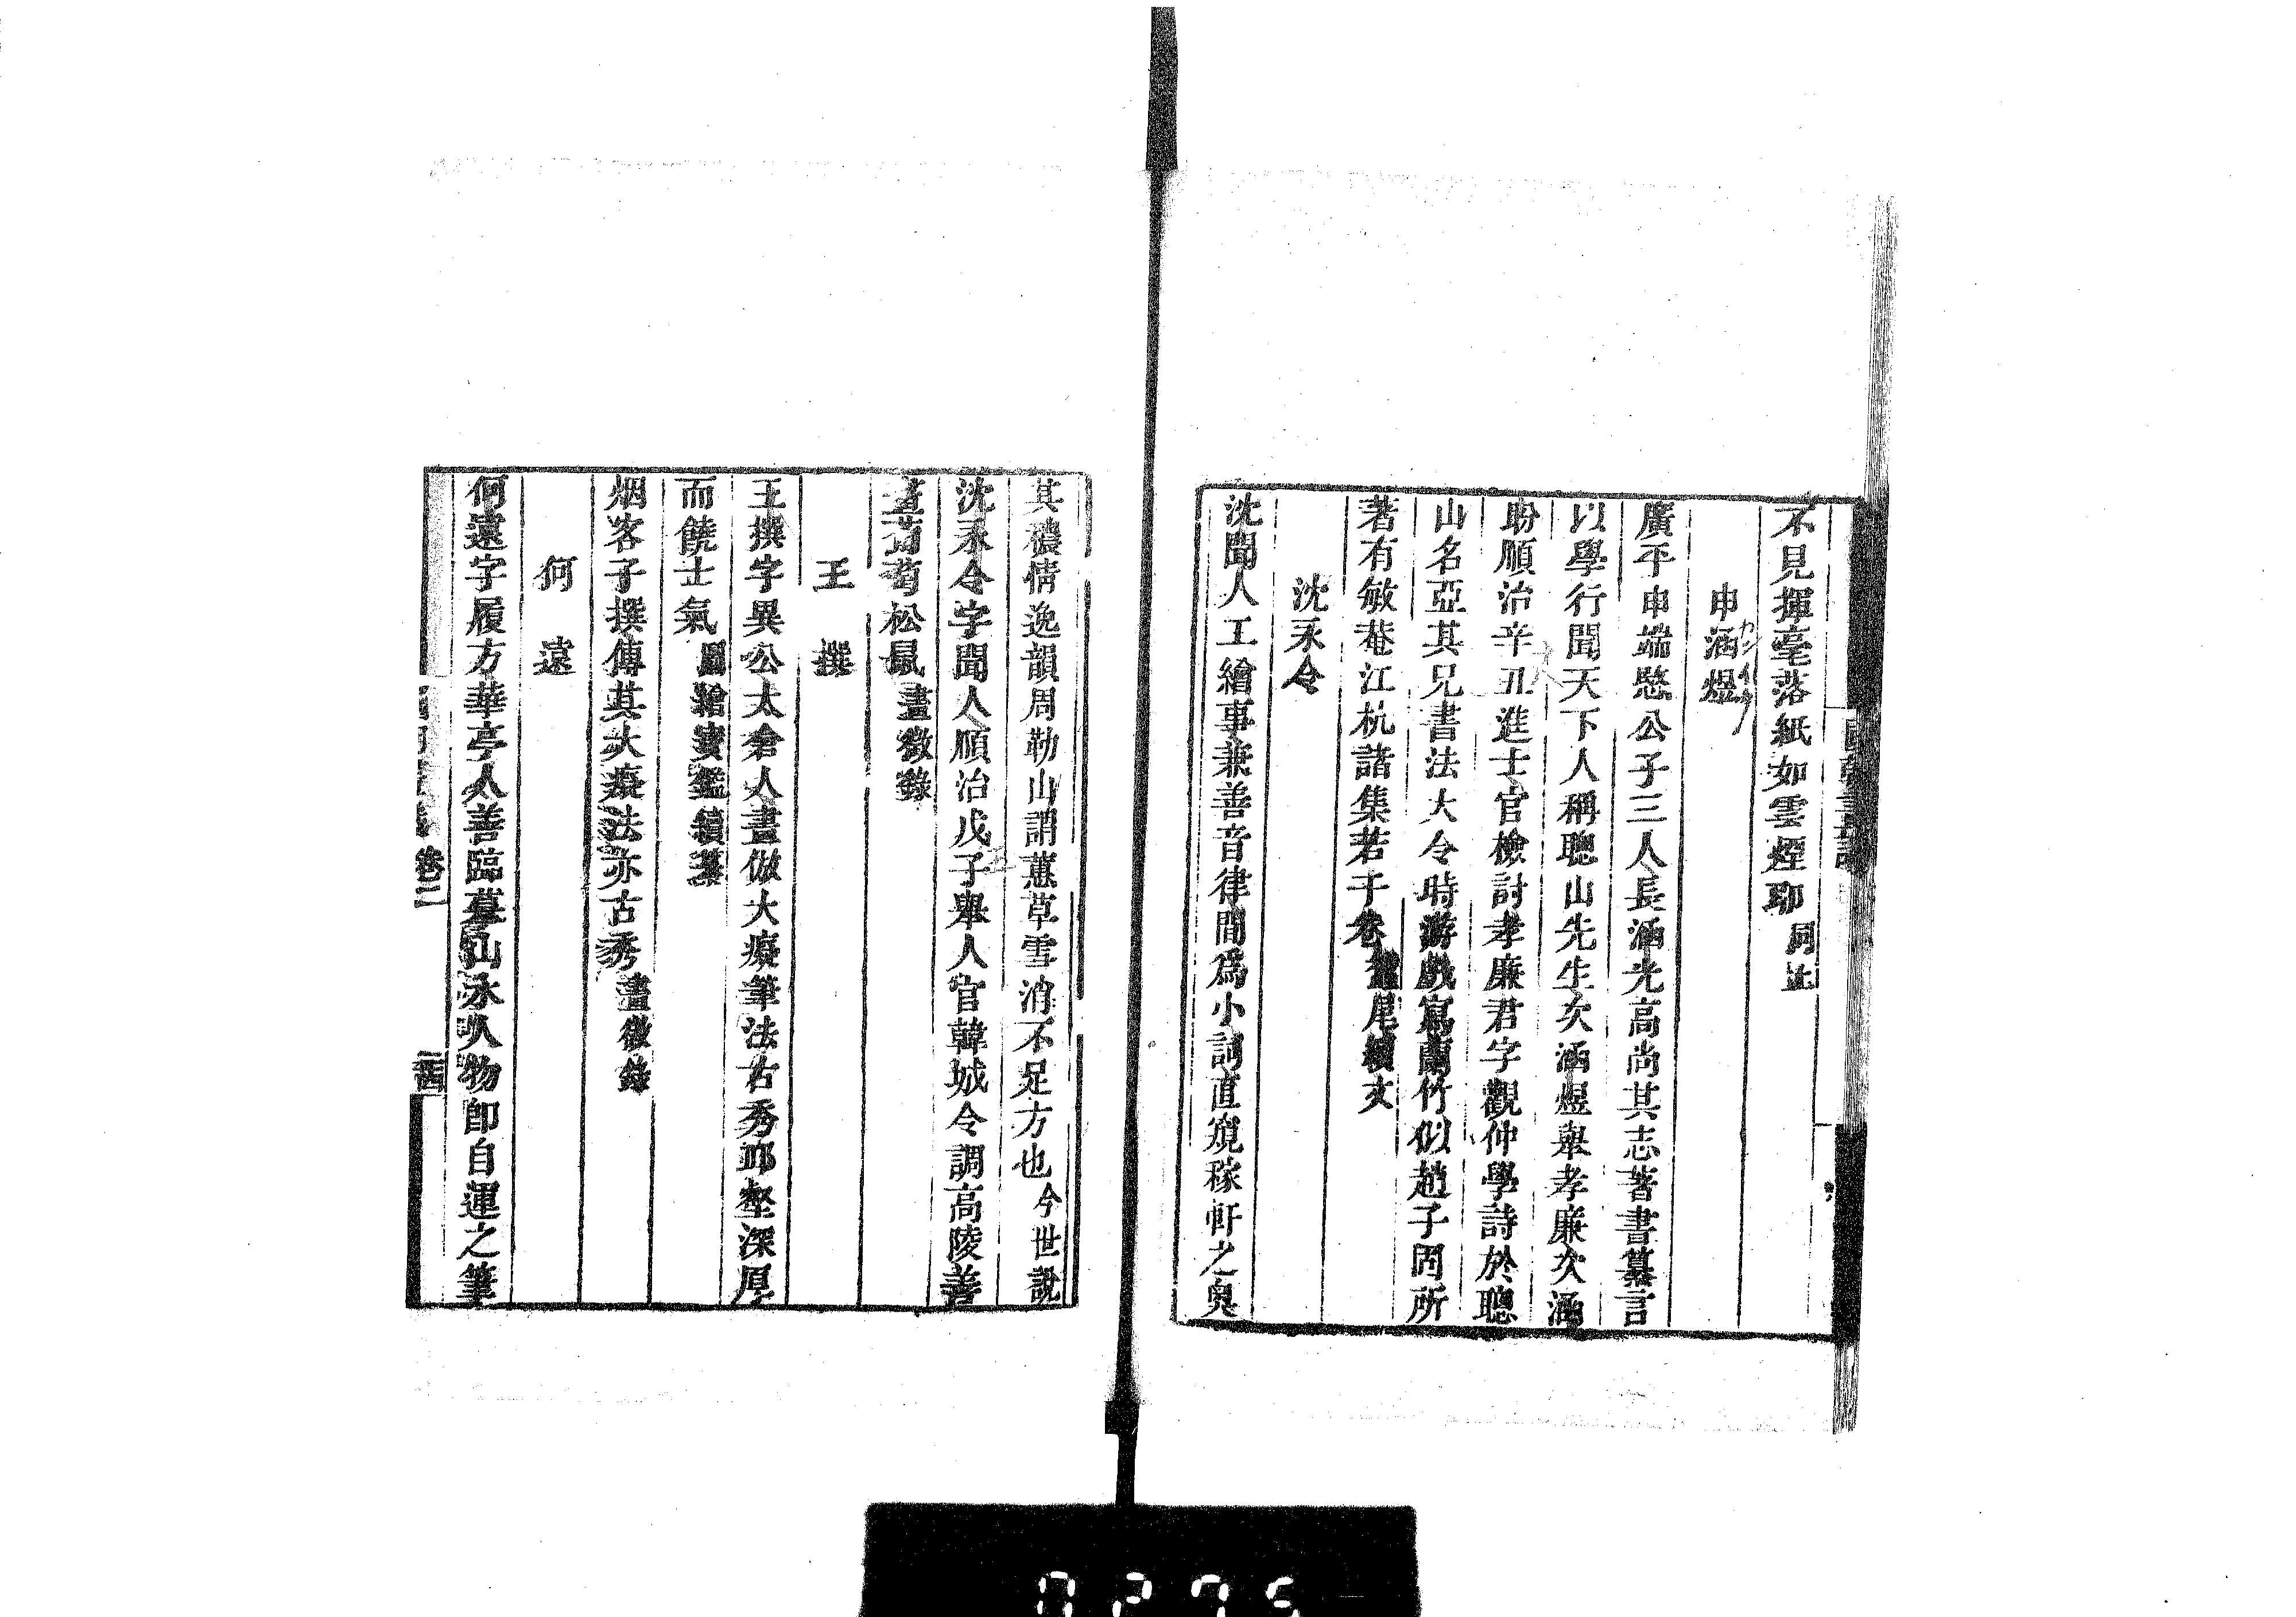 不見揮毫落紙如雲煙耶同上
申涵煜
廣平申端愍公子三人長涵光高尚其志著書纂言
以學行聞天下人稱聰山先生次涵煜舉孝廉次涵
盼順治辛丑進士官檢討孝廉君字觀仲學詩於聰
山名亞其兄書法大令時游戲寫蘭竹似趙子固所
著有敏菴江杭諸集若干卷蠶尾續文
沈永令
沈聞人工繪事兼善音律間爲小詞直窺稼軒之奥
其穠情逸韻周勒山謂蕙草雪消不足方也今世説
沈永令字聞人順治戊子舉人官韓城令調高陵善
畫葡萄松鼠畫徵錄
王撰
王撰字異公太倉人畫倣大癡筆法古秀邱壑深厚
而饒士氣圖繪寶鑑續纂
烟客子撰傳其大癡法亦古秀畫徵錄
何遠
何遠字履方華亭人善臨摹山水人物即自運之筆
卷二
0275